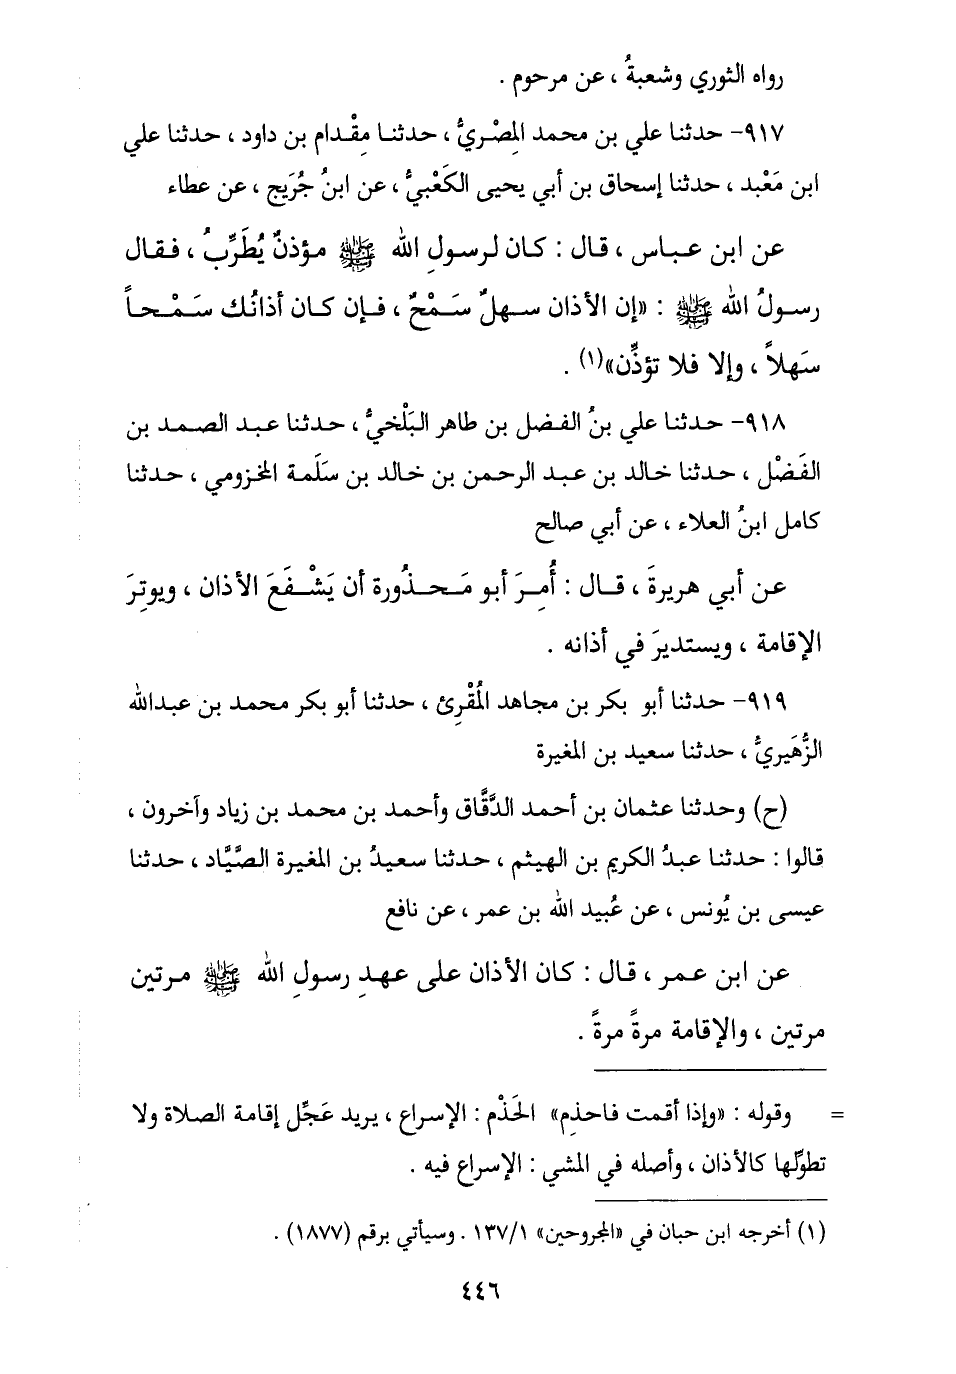 رواه الثوري وشعبةُ ، عن مرحوم .
٩١٧- حدثنا علي بن محمد المِصْريُّ ، حدثنا مِقْدام بن داود ، حدثنا علي
ابن مَعْبد ، حدثنا إسحاق بن أبي يحيى الكَعْبيُّ ، عن ابنُ جُرَيج ، عن عطاء
عن ابن عباس ، قال : كان لرسولِ الله ﷺ مؤذنٌ يُطَرِّبُ ، فقال
رسولُ الله ﷺ : «إن الأذان سهلٌ سَمْحٌ ، فإن كان أذانُك سَمْحاً
سَهلاً ، وإلا فلا تؤذِّن»(١) .
٩١٨- حدثنا علي بنُ الفضل بن طاهر البَلْخيُّ ، حدثنا عبد الصمد بن
الفَضْل ، حدثنا خالد بن عبد الرحمن بن خالد بن سَلَمة المخزومي ، حدثنا
كامل ابنُ العلاء ، عن أبي صالح
عن أبي هريرةَ ، قال : أُمِرَ أبو مَحذُورة أن يَشْفَعَ الأذان ، ويوتِرَ
الإقامة ، ويستديرَ في أذانه .
٩١٩- حدثنا أبو بكر بن مجاهد المُقْرِئ ، حدثنا أبو بكر محمد بن عبدالله
الزُّهَيريُّ ، حدثنا سعيد بن المغيرة
(ح) وحدثنا عثمان بن أحمد الدَّقَّاق وأحمد بن محمد بن زياد وآخرون ،
قالوا : حدثنا عبدُ الكريم بن الهيثم ، حدثنا سعيدُ بن المغيرة الصَّيَّاد ، حدثنا
عيسى بن يُونس ، عن عُبيد الله بن عمر ، عن نافع
عن ابن عمر ، قال : كان الأذان على عهدِ رسولِ الله ﷺ مرتين
مرتين ، والإقامة مرةً مرةً .
= وقوله : «وإذا أقمت فاحذِم» الحَذْم : الإسراع ، يريد عَجِّل إقامة الصلاة ولا
تطوِّلها كالأذان ، وأصله في المشي : الإسراع فيه .
(١) أخرجه ابن حبان في «المجروحين» ١٣٧/١ . وسيأتي برقم (١٨٧٧) .
٤٤٦